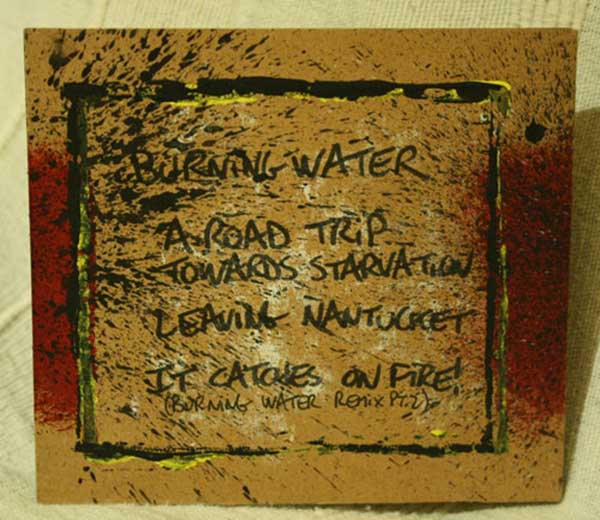 BURNING WATER
A ROAD TRIP
TOWARDS STARVATION
LEAVING NANTUCKET
IT CATCHES ON FIRE!
(BURNING WATER REMIX PT.2)